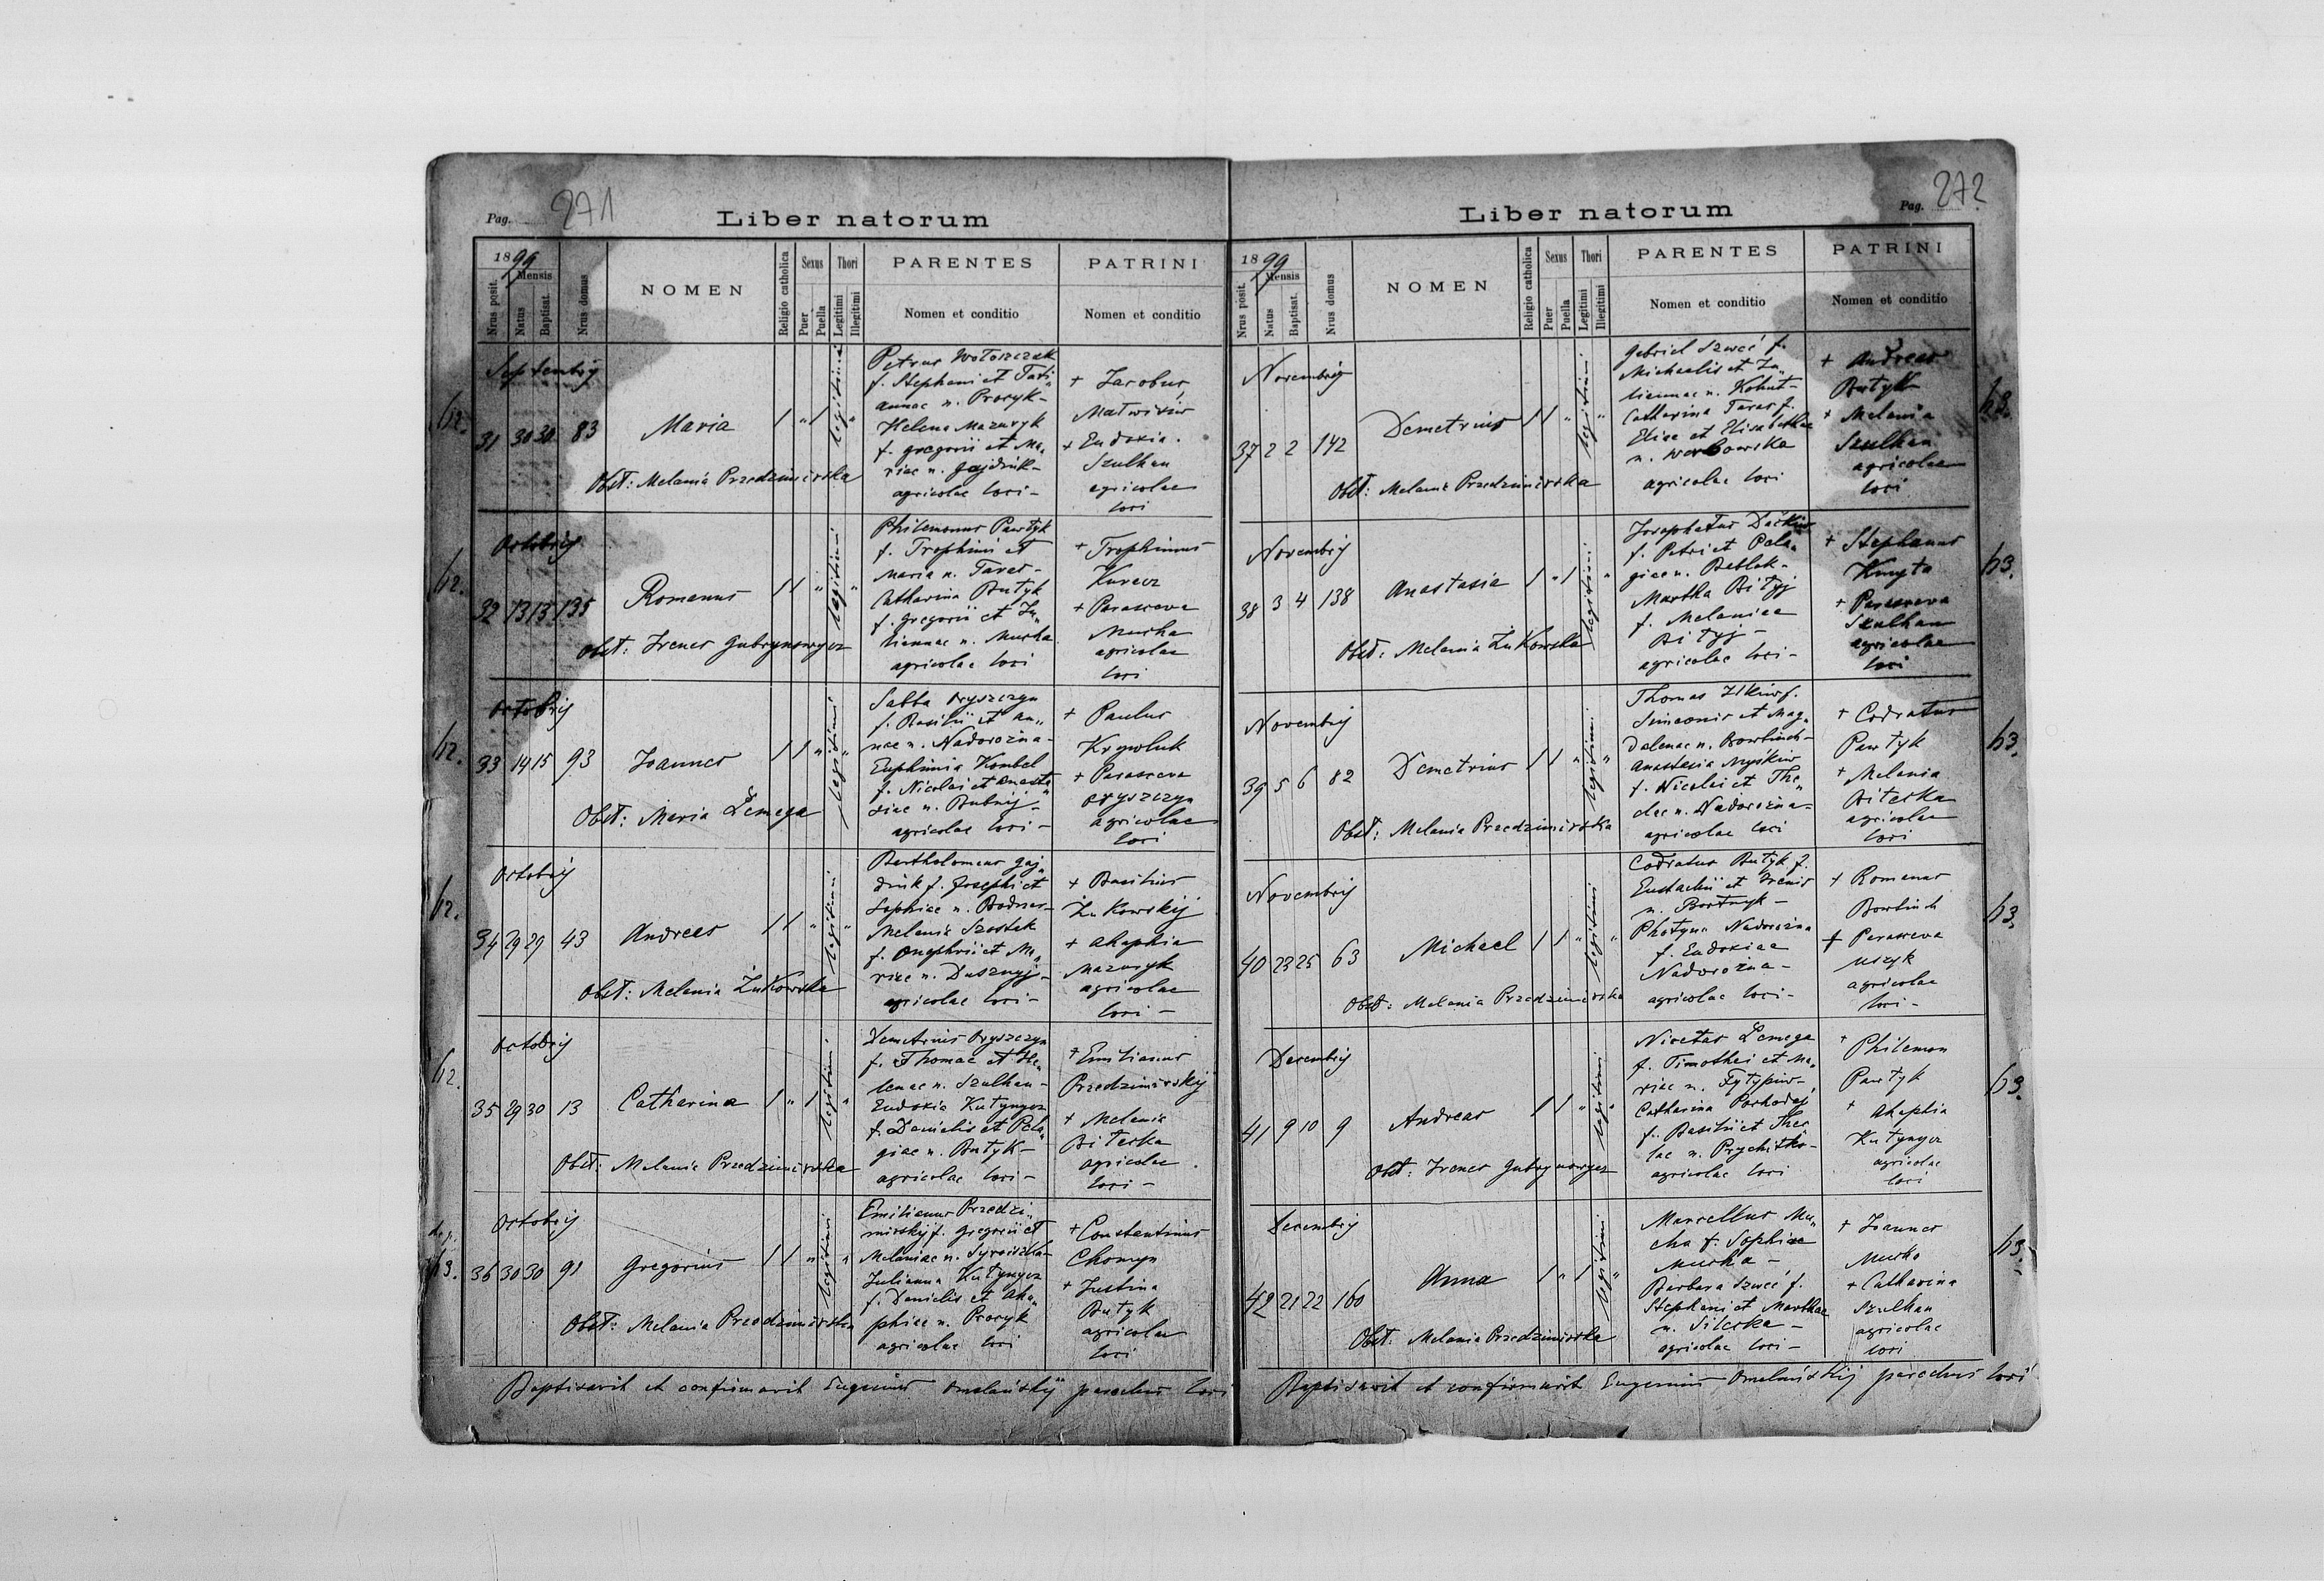 Pag. 271
Liber natorum
1899
Mensis
Nrus posit.
Natus
Baptisat.
Nrus domus
NOMEN
Religio catholica
Sexus
Puer
Puella
Thori
Legitimi
Illegitimi
PARENTES
Nomen et conditio
PATRINI
Nomen et conditio
Septembrij
31 30 30 83 Maria
legitimi
Obst: Melania Przedzimirska
Petrus Wołoszczak
f. Stephani et Tati„
annae n. Procyk-
Helena Mazuryk
f. Gregorii et Ma„
riae n. Gajdiuk-
agricolae loci-
+ Jacobus
Matwisiw
+ Eudoxia
Szulhan
agricolae
loci
Octobrij
32 13 13 135 Romanus
legitimi
Obst: Irenes Gubrynowycz
Philemonus Pawtyk
f. Trophimi et
Maria n. Taras-
Catharina Butyk
f. Gregorii et Ju„
liannae n. Mucha
agricolae loci
+ Trophimus
+ Parasceva
Mucha
agricolae
loci
Octobrij
33 14 15 93 Joannes
legitimi
Obst: Maria Łemega
Sabba Oryszczyn
f. Basilii et An„
nae n. Nadorożna-
Euphimia Kombel
f. Nicolai et Anasta„
siae n. Bubnij-
agricolae loci-
+ Paulus
Krywluk
+ Parasceva
Oryszczyn
agricolae
loci
Octobrij
34 29 29 43 Andreas
legitimi
Obst: Melania Żukowska
Bartholomeus Gaj„
diuk f. Josephi et
Sophiae n. Bodnar-
Melania Szostak
f. Onuphrii et Ma„
riae n. Dusznyj-
agricolae loci-
+ Basilius
Żukowskij
+ Ahaphia
Mazuryk
agricolae
loci -
Octobrij
35 29 30 13 Catharina
legitimi
Obst: Melania Przedzimirska
Demetrius Oryszczyn
f. Thomae et He„
lenae n. Szulhan-
Eudoxia Kutynycz
f. Danielis et Pela„
giae n. Butyk-
agricolae loci-
+ Emilianus
Przedzimirskij
+ Melania
Biteska
agricolae
loci -
Octobrij
36 30 30 91 Gregorius
legitimi
Obst: Melania Przedzimirska
Emilianus Przedzi„
mirskij f. Gregorii et
Melaniae n. Syroiszka-
Julianna Kutynycz
f. Danielis et Aha„
phiae n. Procyk
agricolae loci
+ Constantinus
Chomyn
+ Justina
Butyk
agricolae
loci
Baptisavit et confirmavit Eugenius Omelańskij parochus loci
Pag. 272
Liber natorum
1899
Mensis
Nrus posit.
Natus
Baptisat.
Nrus domus
NOMEN
Religio catholica
Sexus
Puer
Puella
Thori
Legitimi
Illegitimi
PARENTES
Nomen et conditio
PATRINI
Nomen et conditio
Novembrij
37 2 2 142 Demetrius
legitimi
Obst: Melania Przedzimirska
Gabriel Szweć f.
Michaelis et Ju„
liannae n. Kohut-
Catharina Taras f.
Eliae et Elisabethae
n. Werbowska
agricolae loci
+ Andreas
Butyk
+ Melania
Szulhan
agricolae
loci
Novembrij
38 3 4 138 Anastasia
legitimi
Obst: Melania Żukowska
Josaphatus Daćkiw
f. Petri et Pela„
giae n. Bablak-
Martha Bityj
f. Melaniae
Bityj -
agricolae loci-
+ Stephanus
Kmyta
+ Parasceva
Szulhan
agricolae
loci
Novembrij
39 5 6 82 Demetrius
legitimi
Obst: Melania Przedzimirska
Thomas Ilkiw f.
Simeonis et Mag„
dalenae n. Bowtinch-
Anastasia Myśkiw
f. Nicolai et The„
clae n. Nadorożna-
agricolae loci
+ Codratus
Pawtyk
+ Melania
Biteska
agricolae
loci
Novembrij
40 23 25 63 Michael
legitimi
Obst: Melania Przedzimirska
Codratus Butyk f.
Eustachii et Irenis
n. Bortnyk-
Photyna Nadorożna
f. Eudoxiae
Nadorożna-
agricolae loci-
+ Romanus
+ Parasceva
agricolae
loci-
Decembrij
41 9 10 9 Andreas
legitimi
Obst: Irenes Gubrynowycz
Nicetas Łemega
f. Timothei et Ma„
riae n. Fytypiw-
Catharina Pochodaj
f. Basilii et Thec„
lae n. Prychitko-
agricolae loci
+ Philemon
Pawtyk
+ Ahaphia
Kutynycz
agricolae
loci
Decembrij
42 21 22 160 Anna
legitimi
Obst: Melania Przedzimirska
Marcellus Mu„
cha f. Sophiae
Mucha -
Barbara Szweć f.
Stephani et Marthae
n. Sileska-
agricolae loci-
+ Joannes
Mucha
+ Catharina
Szulhan
agricolae
loci
Baptisavit et confirmavit Eugenius Omelańskij parochus loci